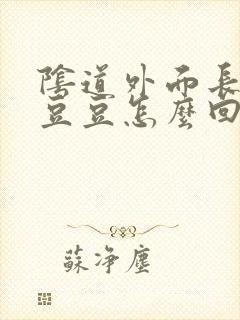 陰道外面長
豆豆怎麼回
蘇淨塵